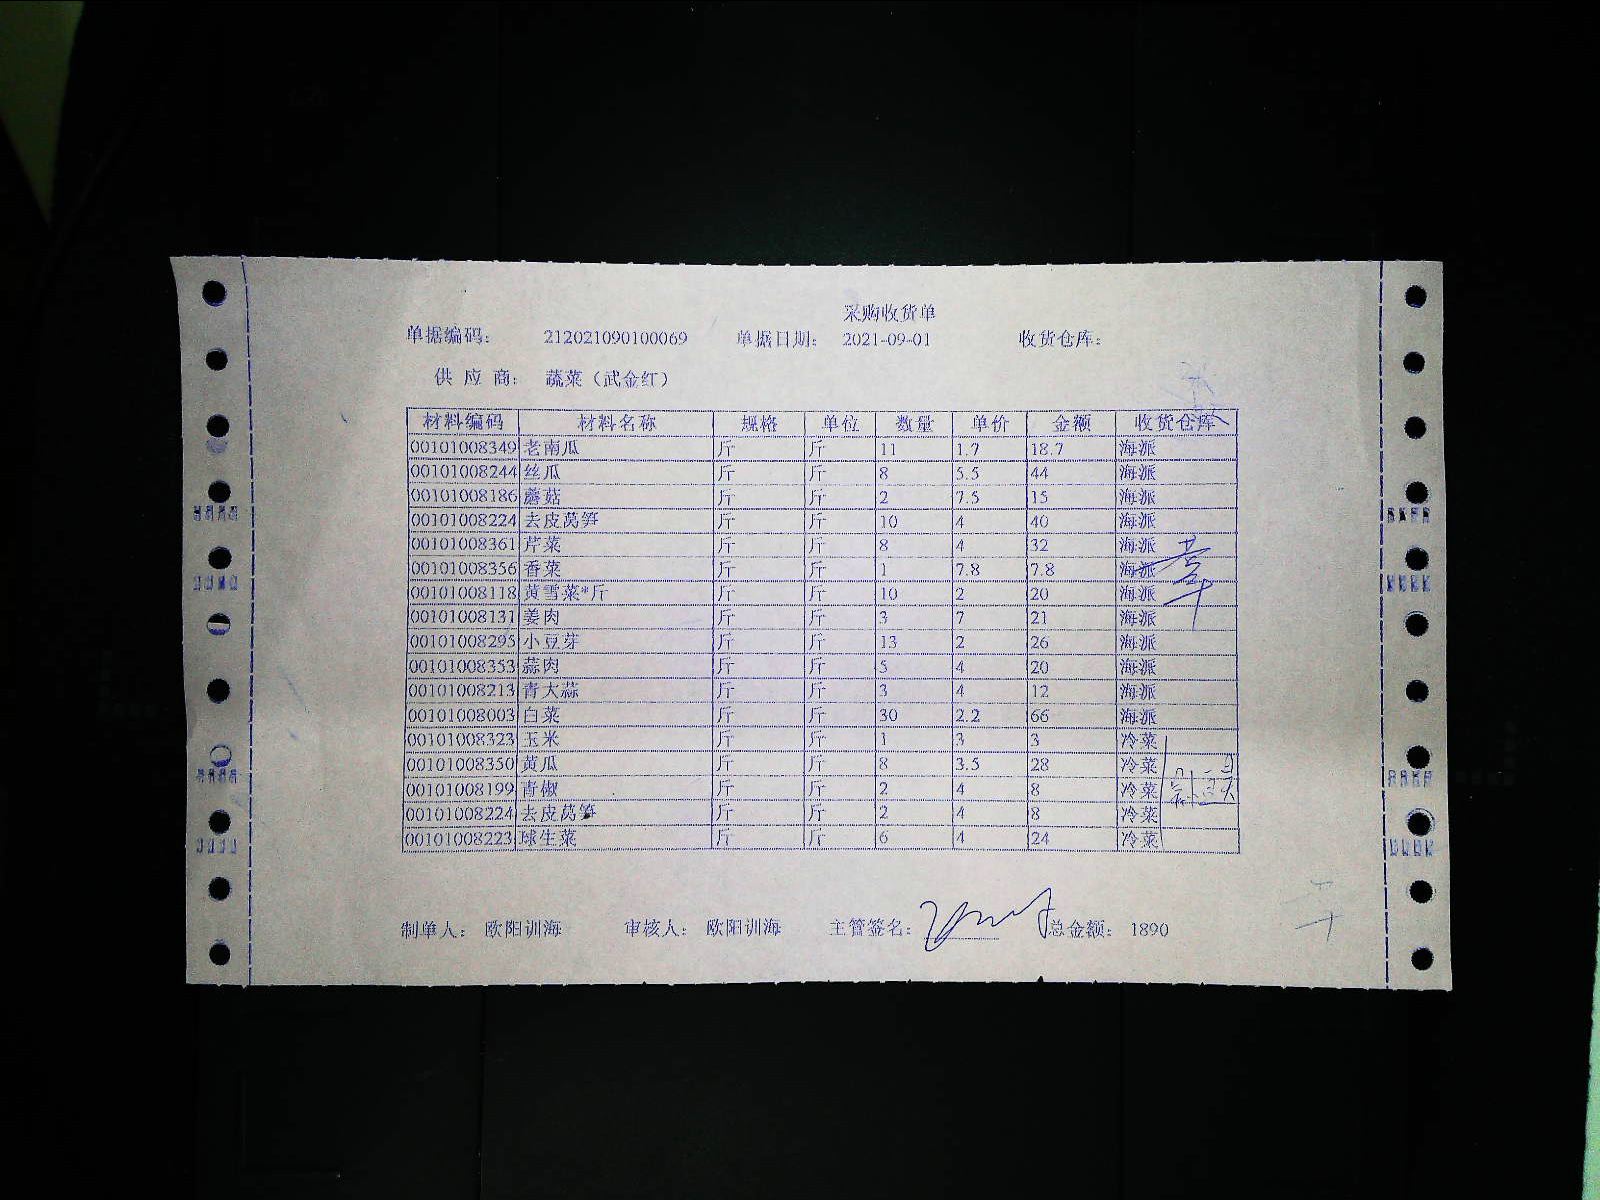 采购收货单
单据编码: 212021090100069 单据日期: 2021-09-01 收货仓库:
供应商: 蔬菜（武金红）
材料编码 材料名称 规格 单位 数量 单价 金额 收货仓库
00101008349 老南瓜 斤 斤 11 1.7 18.7 海派
00101008244 丝瓜 斤 斤 8 5.5 44 海派
00101008186 蘑菇 斤 斤 2 7.5 15 海派
00101008224 去皮莴笋 斤 斤 10 4 40 海派
00101008361 芹菜 斤 斤 8 4 32 海派
00101008356 香菜 斤 斤 1 7.8 7.8 海派
00101008118 黄雪菜*斤 斤 斤 10 2 20 海派
00101008131 姜肉 斤 斤 3 7 21 海派
00101008295 小豆芽 斤 斤 13 2 26 海派
00101008353 蒜肉 斤 斤 5 4 20 海派
00101008213 青大蒜 斤 斤 3 4 12 海派
00101008003 白菜 斤 斤 30 2.2 66 海派
00101008323 玉米 斤 斤 1 3 3 冷菜
00101008350 黄瓜 斤 斤 8 3.5 28 冷菜
00101008199 青椒 斤 斤 2 4 8 冷菜
00101008224 去皮莴笋 斤 斤 2 4 8 冷菜
00101008223 球生菜 斤 斤 6 4 24 冷菜
制单人: 欧阳训海 审核人: 欧阳训海 主管签名: 总金额: 1890